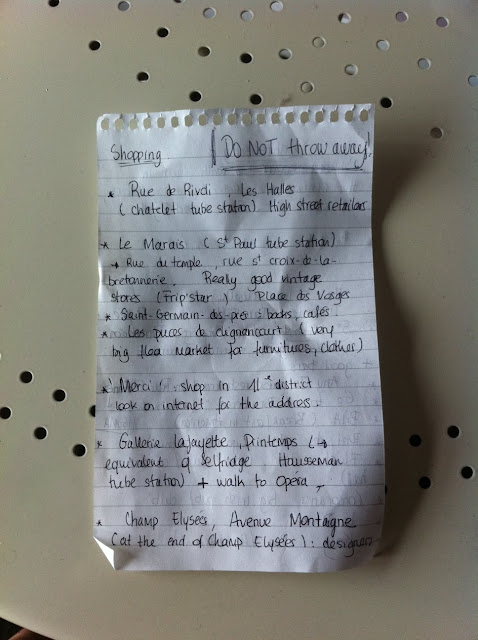 Shopping.
DO NOT throw away!
* Rue de Rivoli, Les Halles
(chatelet tube station) High street retailers
* Le Marais (St Paul tube station)
→ Rue du temple, rue st croix-de-la-
bretonnerie. Really good vintage
stores (Frip'star) Place des Vosges
* Saint-Germain-des-pres : books, cafés.
* Les puces de clignancourt (very
big flea market for furnitures, clothes)
* 'Merci' shop in 11e district
look on internet for the address.
* Gallerie lafayette, Printemps (→
equivalent of selfridge Hausseman
tube station) + walk to Opéra.
* Champ Elysées, Avenue Montaigne
(at the end of Champ Elysées) : designers